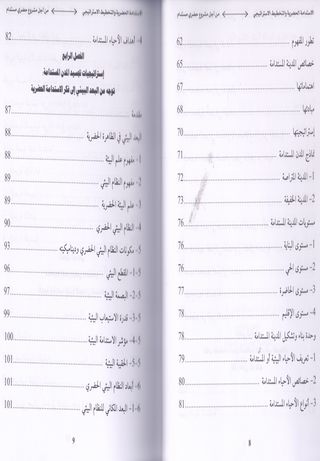 الاستدامة الحضرية والتخطيط الاستراتيجي <——> من أجل مشروع حضري مستدام
تطور المفهوم 62
خصائص المدينة المستدامة 65
اهتماماتها 67
مبادئها 67
إستراتيجيتها 70
نماذج المدن المستدامة 71
1- المدينة المتراصة 72
2- المدينة الخفيفة 73
مستويات المدينة المستدامة 76
1- مستوى البناية 76
2- مستوى الحي 76
3- مستوى الحاضرة 77
4- مستوى الإقليم 78
وحدة بناء وتشكيل المدينة المستدامة 78
1- تعريف الأحياء البيئية أو المستدامة 79
2- خصائص الأحياء المستدامة 80
3- أنواع الأحياء المستدامة 81
8
الاستدامة الحضرية والتخطيط الاستراتيجي <——> من أجل مشروع حضري مستدام
4- أهداف الأحياء المستدامة 82
الفصل الرابع
إستراتيجيات تجسيد المدن المستدامة:
توجه من البعد البيئي إلى فكر الاستدامة الحضرية
مقدمة 87
البعد البيئي في الظاهرة الحضرية 88
1- مفهوم علم البيئة 88
2- مفهوم النظام البيئي 89
3- علم البيئة الحضرية 89
4- النظام البيئي الحضري 90
5- مكونات النظام البيئي الحضري وديناميكيته 93
5-1- المقطع البيئي 96
5-2- البصمة البيئية 97
5-3- قدرة الاستيعاب البيئية 99
5-4- مؤشر الاستدامة البيئية 100
5-5- الحقيبة البيئية 101
6- أبعاد النظام البيئي الحضري 101
6-1- البعد المكاني للنظام البيئي 101
9